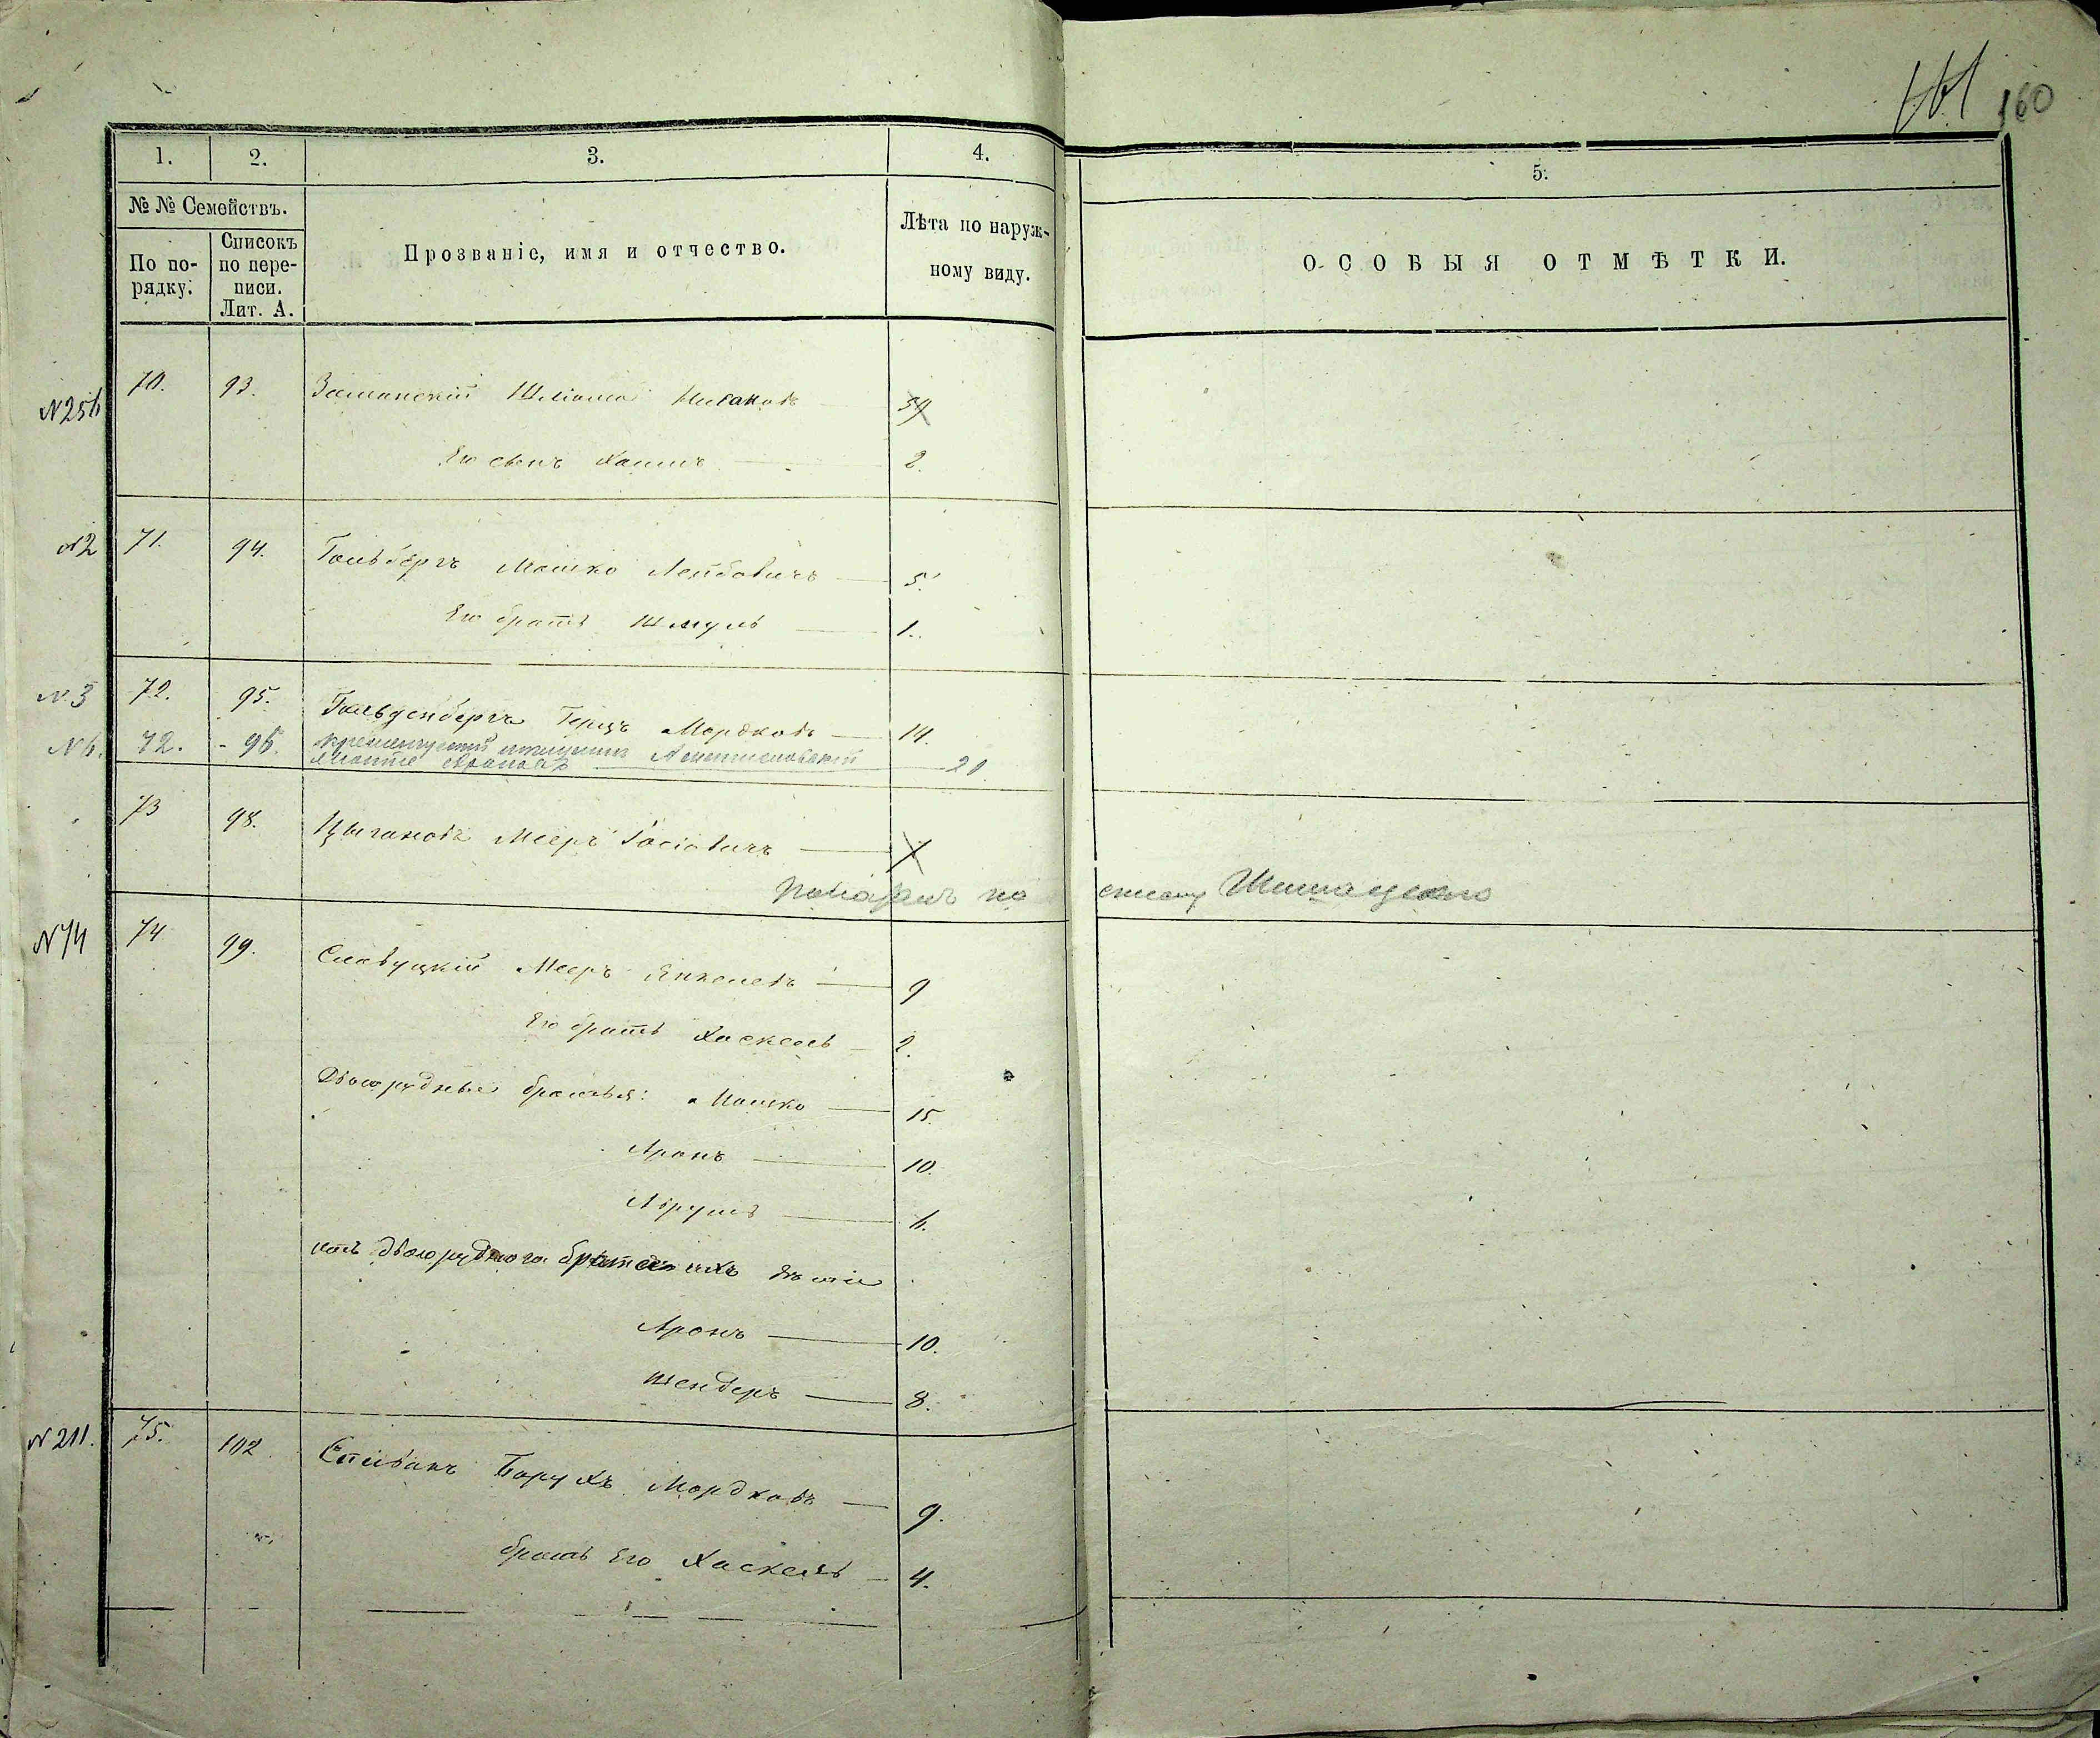 160
1. 2. 3. 4. 5.
№ № Семействъ.
По порядку.
Списокъ по переписи. Лит. А.
Прозваніе, имя и отчество.
Лѣта по наружному виду.
ОСОБЫЯ ОТМѢТКИ.
70. 93. Шлiома Нисановъ
Его сынъ Хаимъ 2.
№2 71. 94. Гольбергъ Мошко Лейбовичъ 5.
Его братъ Шмуль 1.
№3 72. 95. Гольденбергъ Герцъ Мордковъ 14.
72. - 96.
20.
73 98. Цыгановъ Мееръ
показанъ по списку
№74 74 99. Славуцкій Мееръ Янкелевъ 9
Его братъ Хаскель 2.
Двоюродные братья: Мошко 15.
Аронъ 10.
Абрумъ 6.
двоюроднаго брата ихъ дѣти
Аронъ 10.
Шендеръ 8.
№211. 75. 102. Спивакъ Борухъ Мордковъ 9.
братъ Его Хаскель 4.